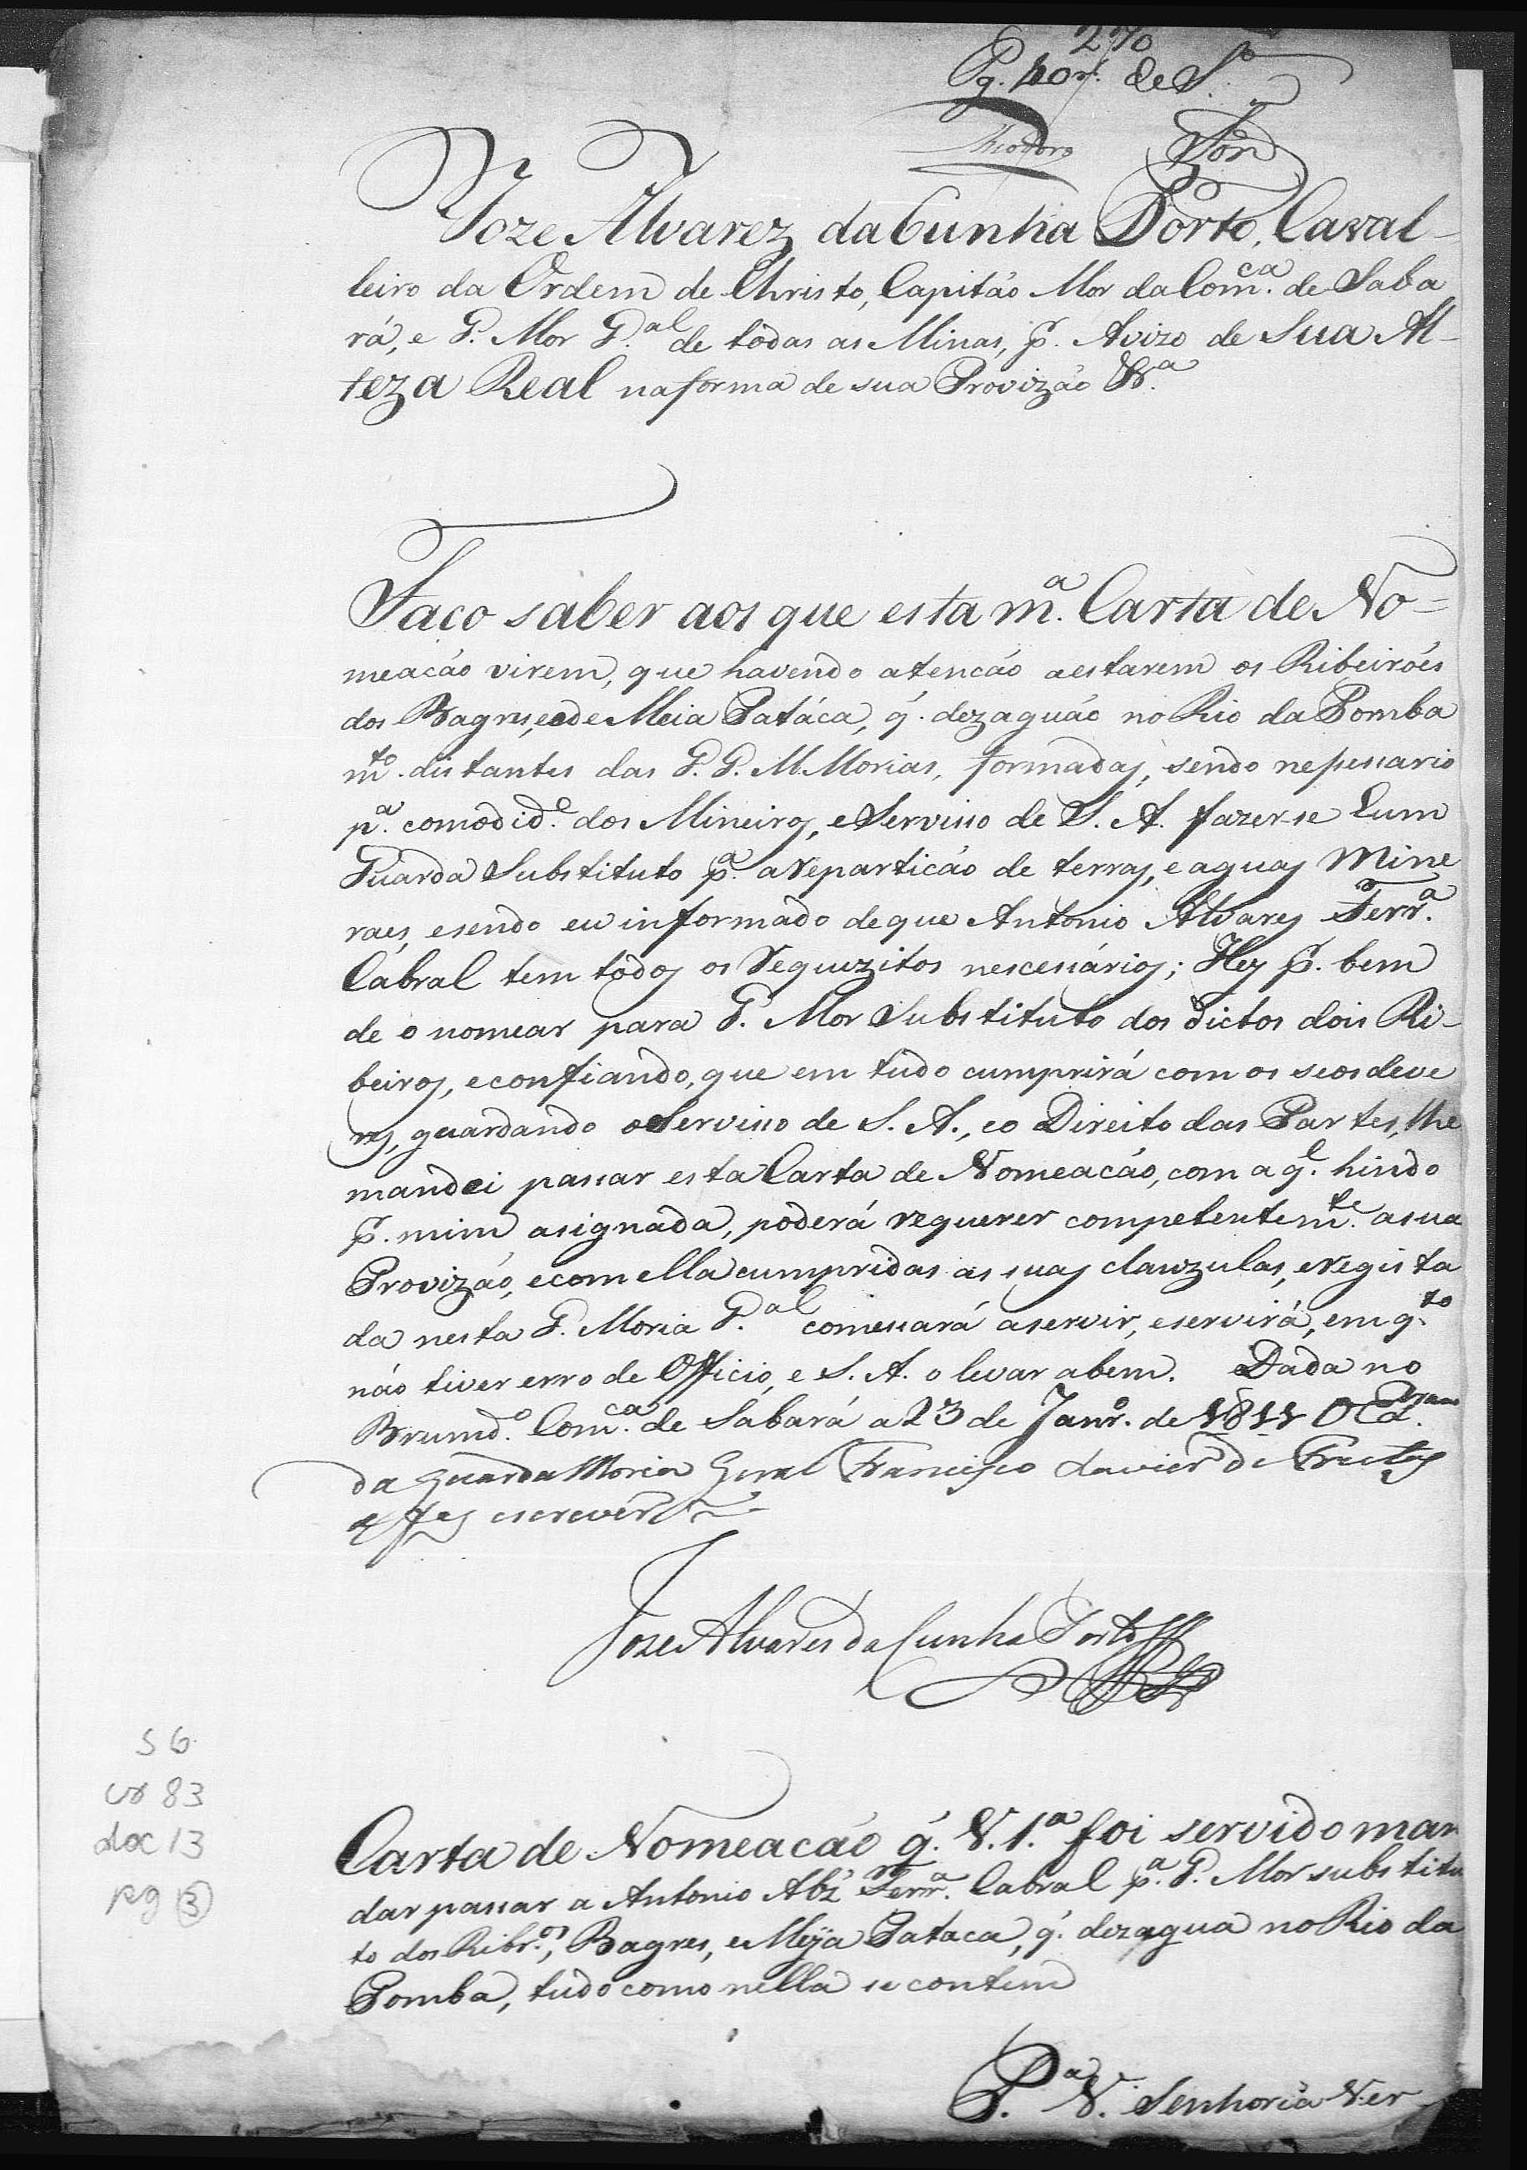 270
Pg. 40 r.s de S.o
Theodoro
Joze Alvarez da Cunha Porto, Caval-
leiro da Ordem de Christo, Capitáo Mor da Com.ca de Saba
rá, e G. Mor G.al de todas as Minas, p.r Avizo de Sua Al-
teza Real na forma de sua Provizáo &.a
Faço saber aos que esta m.a Carta de No=
meacáo virem, que havendo atencáo a estarem os Ribeiróes
dos Bagres, e o de Meia Patáca, q. dezaguáo no Rio da Pomba
m.to distantes das G. G. M. Morias, formadas, sendo nessessario
p.a comodid.e dos Mineiros, e Servisso de S. A. fazer-se hum
Guarda Substituto p.a a reparticáo de terras, e aguas Mine
raes, e sendo eu informado de que Antonio Alvares Ferr.a
Cabral tem todos os requizitos nescessários; Hey p.r bem
de o nomear para G. Mor Substituto dos dictos dois Ri-
beiros, e confiando, que em tudo cumprirá com os seos deve
res, guardando o Servisso de S. A., e o Direito das Partes, lhe
mandei passar esta Carta de Nomeacáo, com a q.l hindo
p.r mim asignada, poderá requerer competentem.te a sua
Provizáo, e com ella cumpridas as suas clauzulas, e regista
da nesta G. Moria G.al comessará a servir, e servirá, em q.to
náo tiver erro de Officio, e S. A. o levar a bem. Dada no
Brumd.o Com.ca de Sabará a 23 de Janr.o de 1811 O
da Guarda Moria Geral Francisco Xavier de Freitas
a fes escrever
Joze Alvares da Cunha Porto
S 6
cx 83
doc 13
pg 3
Carta de Nomeacáo q. V. S.a foi servido man
dar passar a Antonio Alvz' Ferr.a Cabral p.a G. Mor substitu
to dos Ribr.os, Bagres, e Meÿa Pataca, q. dezagua no Rio da
Pomba, tudo como nella se contem
P.a V. Senhoria Ver